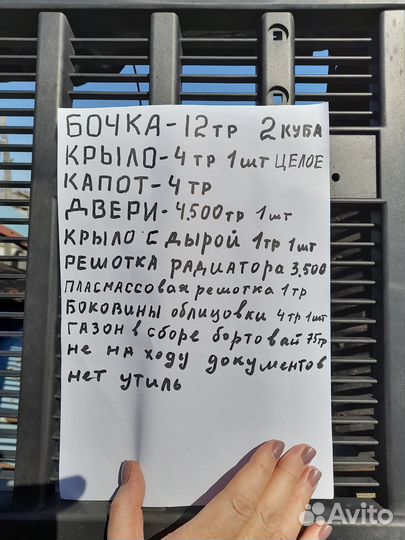 БОЧКА-12ТР 2КУБА
КРЫЛО-4ТР 1ШТ ЦЕЛОЕ
КАПОТ-4ТР
ДВЕРИ-4.500ТР 1ШТ
КРЫЛО С ДЫРОЙ 1ТР 1ШТ
РЕШОТКА РАДИАТОРА 3.500
ПЛАСМАССОВАЯ РЕШОТКА 1ТР
БОКОВИНЫ ОБЛИЦОВКИ 4ТР 1ШТ
ГАЗОН В СБОРЕ БОРТОВАЙ 75ТР
НЕ НА ХОДУ ДОКУМЕНТОВ
НЕТ УТИЛЬ
Avito